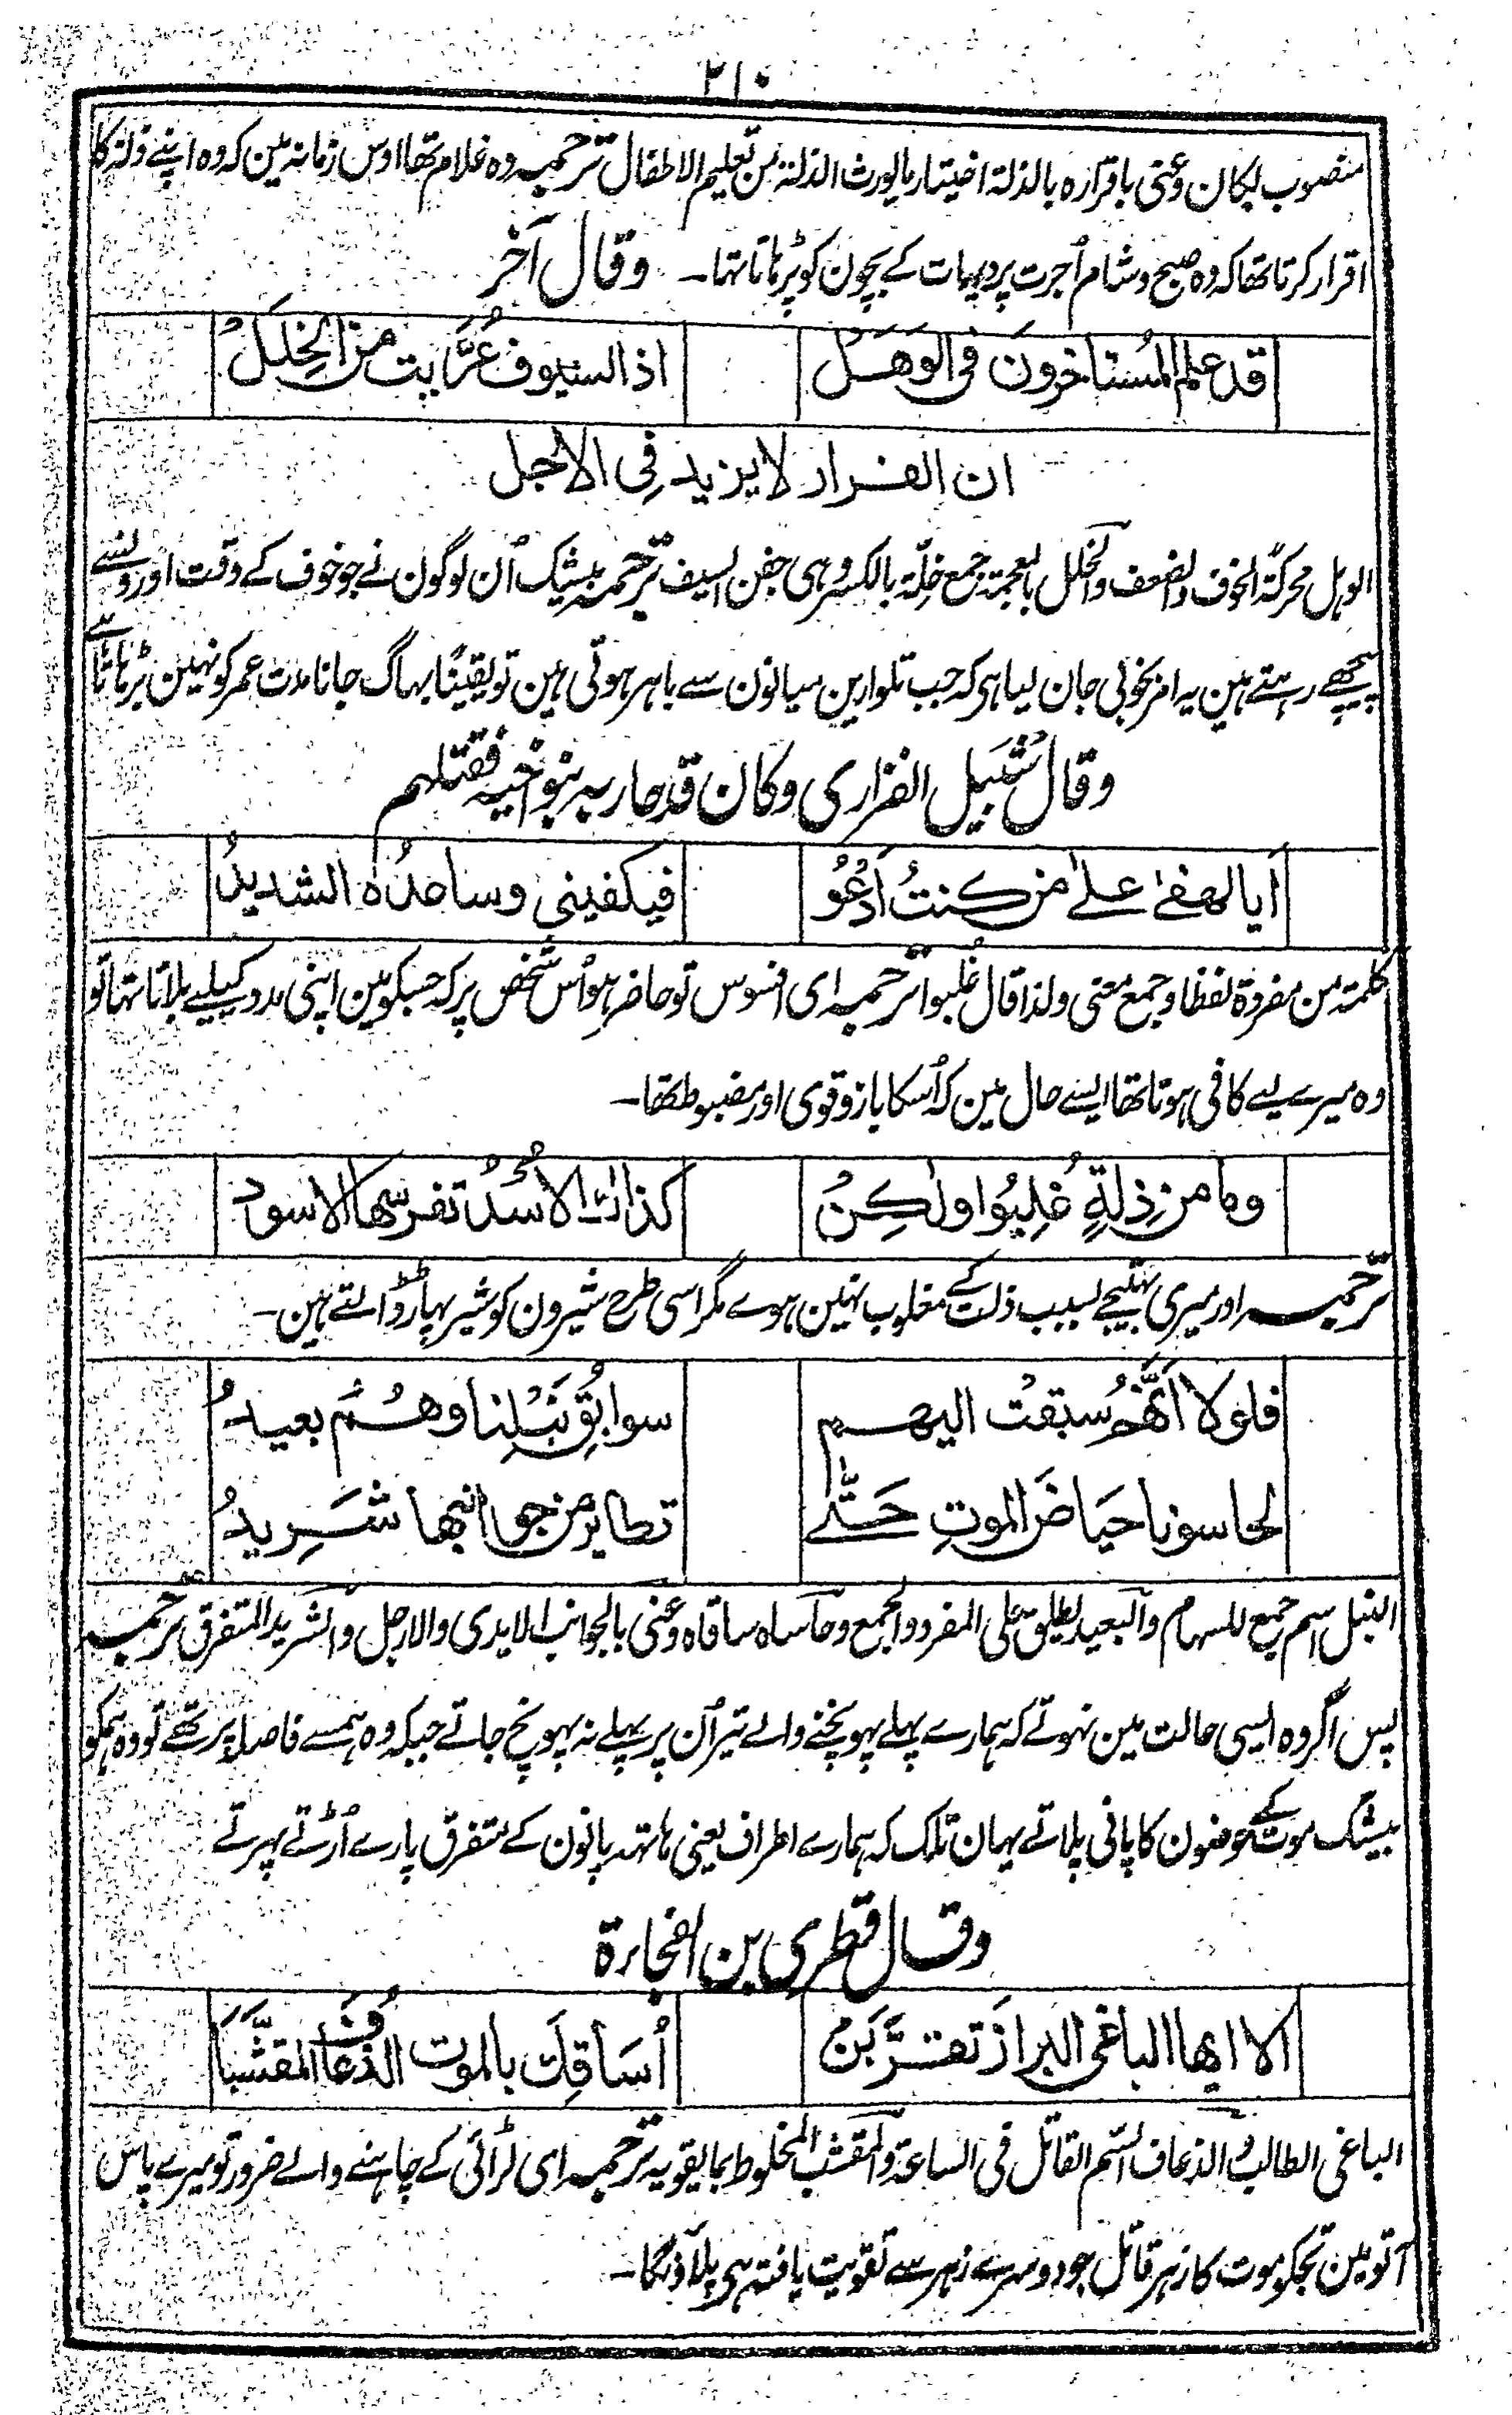 ۲۱۰
منصوب لکان وعنی باقراره بالذلة اختیار ما یورث الذلة من تعلیم الاطفال ترجمہ وہ غلام تھا اوس زمانہ مین کہ وہ اپنے ذلۃ کا
اقرار کرتا تھا کہ وہ صبح و شام اُجرت پر دیہات کے بچون کو پڑہاتا تہا۔ وقال آخر
قد علم المُستاخرونَ فی الوَهَلْ اذا السیوف عُرِّیت من الخِلَلْ
ان الفرار لا یزید فِی الاجل
الوہل محرکة الخوف والضعف والخلل بالمعجمة جمع خِلّة بالکسر وہی جفن السیف ترجمہ بیشک اُن لوگون نے جو خوف کے وقت اورونسے
پیچھے رہتے ہین یہ امر بخوبی جان لیا ہی کہ جب تلوارین میانون سے باہر ہوتی ہین تو یقینًا بہاگ جانا مدت عمر کو نہین بڑہاتا ہے
وقال شُبَیل الفزاری وکان قد حاربه بنو اخیه فقتلهم
اَیا لهفےٰ علےٰ من کنتُ اَدعُوْ فیکفینی وساعدُہ الشدیدُ
کلمة من مفردة لفظا وجمع معنی ولذا قال غُلبوا ترجمہ ای افسوس تو حاضر ہو اُس شخص پر کہ جسکو مین اپنی مدد کیلیے بلاتا تہا تو
وہ میرے لیے کافی ہوتا تھا ایسے حال مین کہ اُسکا بازو قوی اور مضبوط تھا۔
وما من ذِلةٍ غُلِبُوا ولٰکِنْ کذاك الاُسْدُ تفرسها الاسود
ترجمہ اور میری بہتیجے بسبب ذلت کے مغلوب نہین ہوے مگر اسی طرح شیرون کو شیر پہاڑ ڈالتے ہین۔
فلولا اَنَّهُم سبقتْ الیهم سوابُقِ نَبْلِنا وهُمْ بعیدُ
لحاسونا حیاضَ الموتِ حَتّٰے تطایر من جوانبها شَرِیدُ
النبل اسم جمع للسهام والبعید یطلق علی المفرد والجمع وحاساه ساقاه وعنی بالجوانب الایدی والارجل والشرید المتفرق ترجمہ
پس اگر وہ ایسی حالت مین نہوتے کہ ہمارے پہلے پہونچنے والے تیر اُن پر پہلے نہ پہونچ جاتے جبکہ وہ ہمسے فاصلہ پر تھے تو وہ ہمکو
بیشک موت کے حوضون کا پانی پلاتے یہان تلک کہ ہمارے اطراف یعنی ہاتہہ پانون کے متفرق پارے اُڑتے پہرتے
وقال قطری بن الفجاءة
الا ایها الباغی البراز تقرَّبَنْ اُسَاقِكَ بالموت الذُعافَ المقشَّبَا
الباغی الطالب والذعاف السّم القاتل فی الساعة والمقشب المخلوط بما یقویه ترجمہ ای لڑائی کے چاہنے والے ضرور تو میرے پاس
آ تو مین تجکو موت کا زہر قاتل جو دوسرے زہر سے تقویت یافتہ ہی پلاؤنگا۔